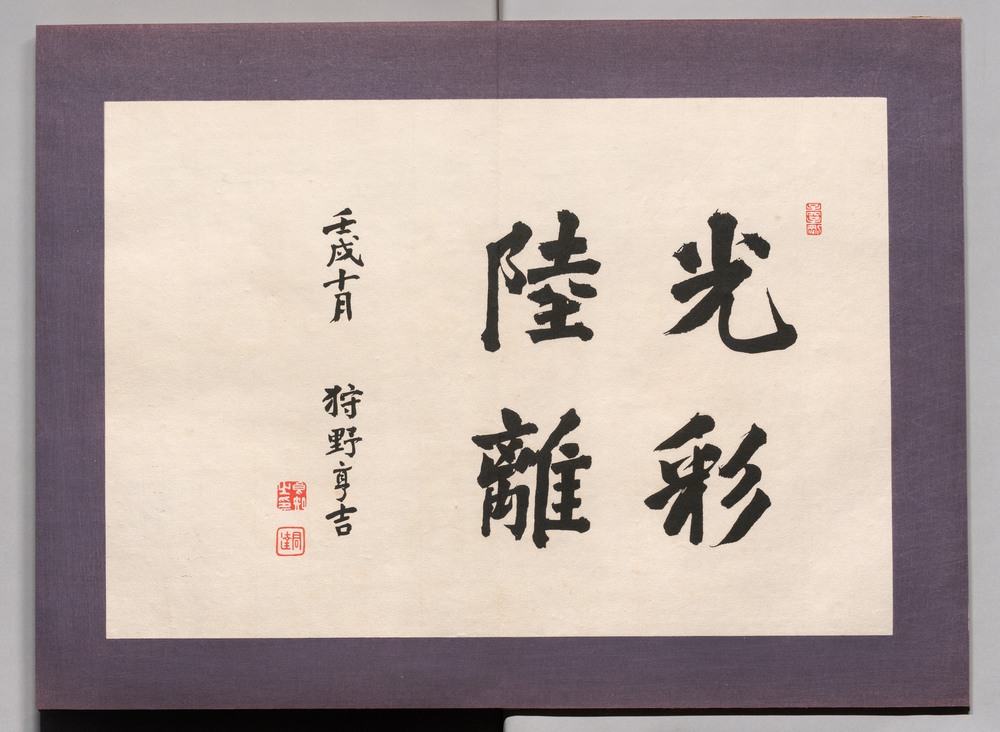 光彩
陸離
壬戌十月 狩野亨吉